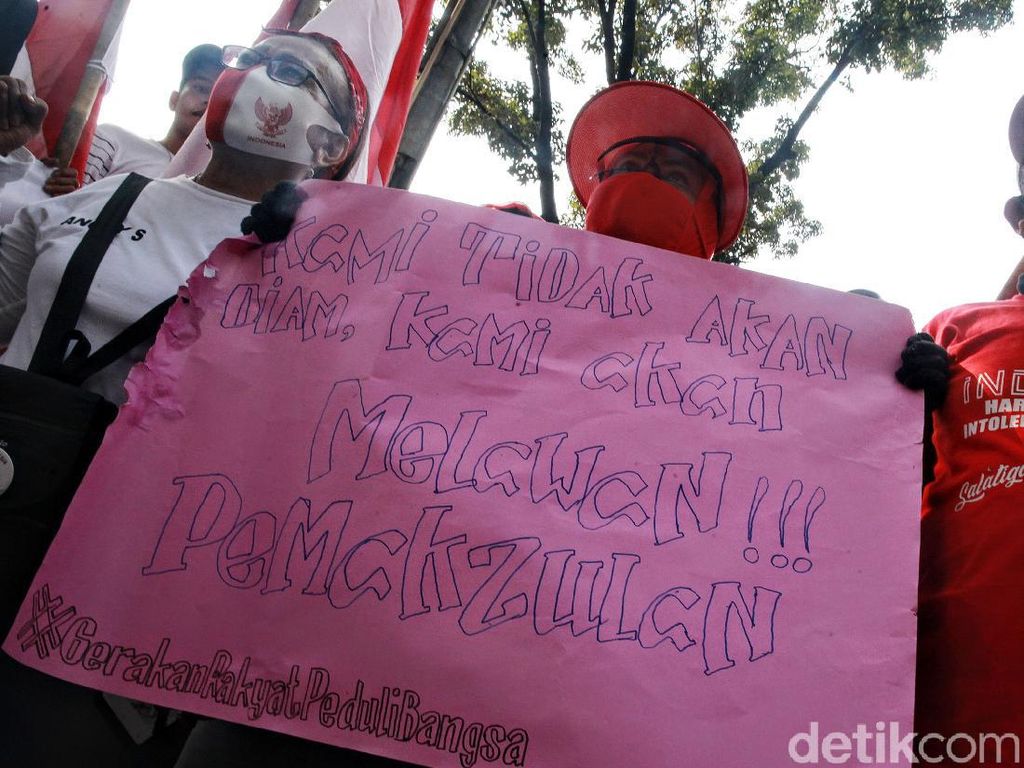 INDONESIA
KaMi TIDAK AKAN
DIAM, KaMi akan
MeLaWaN!!!
PeMakZULaN
#GerakanRakyatPeduliBangsa
HAR
Salatiga
detikcom